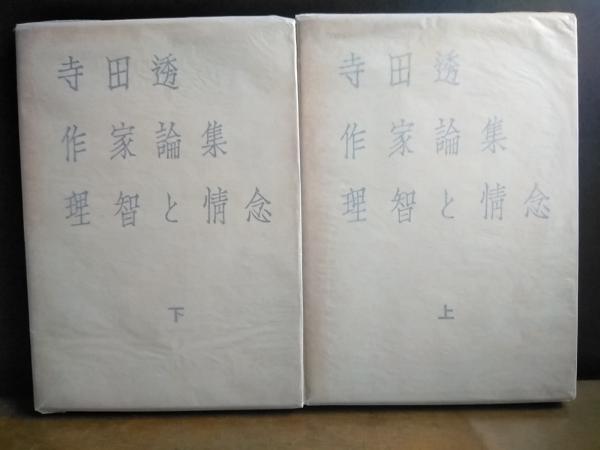 寺田透
作家論集
理智と情念
下
寺田透
作家論集
理智と情念
上